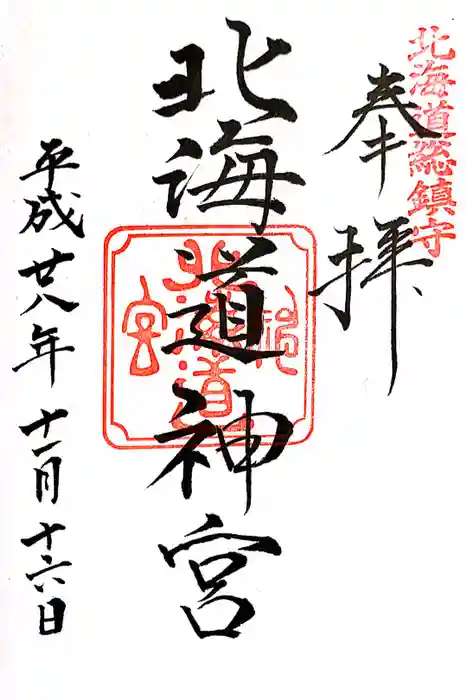 北海道総鎮守
奉拝
北海道神宮
平成廿八年十一月十六日